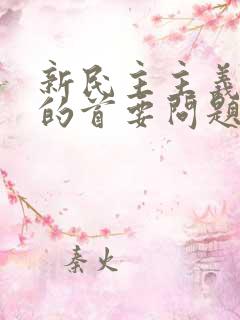 新民主主義
的首要問題
秦火